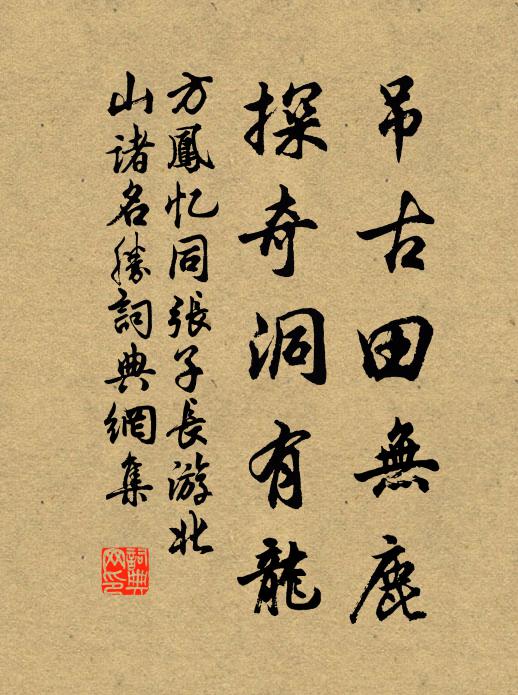 吊古田無鹿
探奇洞有龍
方鳳忆同張子長游北
山諸名勝詞典網集
詞典网印